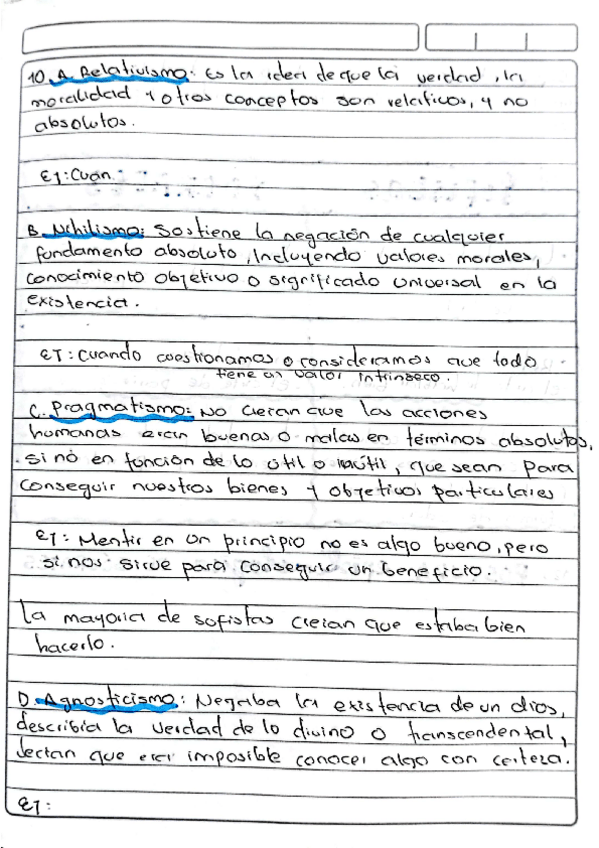 10. A. Relativismo: Es la idea de que la verdad, la
moralidad y otros conceptos son relativos, y no
absolutos.
EJ: Cuan
B. Nihilismo: Sostiene la negación de cualquier
fundamento absoluto, Incluyendo valores morales,
conocimiento objetivo o significado universal en la
existencia.
EJ: Cuando cuestionamos o consideramos que todo
tiene un valor intrinseco.
C. Pragmatismo: No creian que las acciones
humanas eran buenas o malas en términos absolutos,
si nó en función de lo útil o inútil, que sean para
conseguir nuestros bienes y objetivos particulares
EJ: Mentir en un principio no es algo bueno, pero
si nos sirve para conseguir un beneficio.
La mayoria de sofistas creian que estaba bien
hacerlo.
D. Agnosticismo: Negaba la existencia de un dios,
describia la verdad de lo divino o transcendental,
decian que era imposible conocer algo con certeza.
EJ: